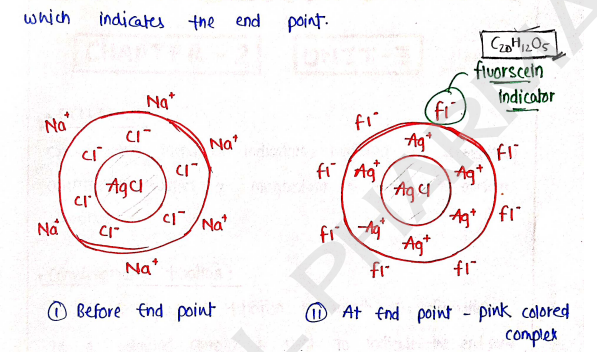 which indicates the end point.
C20H12O5
fluorscein
Indicator
fl⁻
Na⁺
Na⁺
Na⁺
Na⁺
Na⁺
Na⁺
Cl⁻
Cl⁻
Cl⁻
Cl⁻
Cl⁻
Cl⁻
AgCl
fl⁻
fl⁻
fl⁻
fl⁻
fl⁻
fl⁻
fl⁻
fl⁻
Ag⁺
Ag⁺
Ag⁺
Ag⁺
Ag⁺
Ag⁺
Ag⁺
AgCl
(I) Before End point
(II) At End point - pink colored
complex